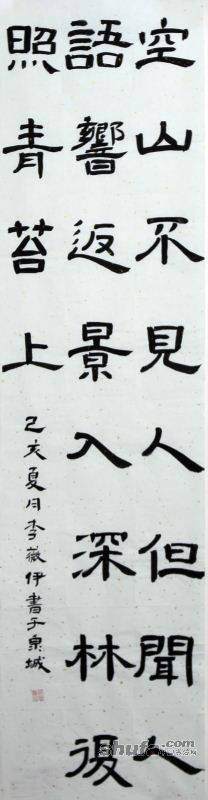 空山不見人但聞人
語響返景入深林復
照青苔上
己亥夏月李薇伊書于泉城